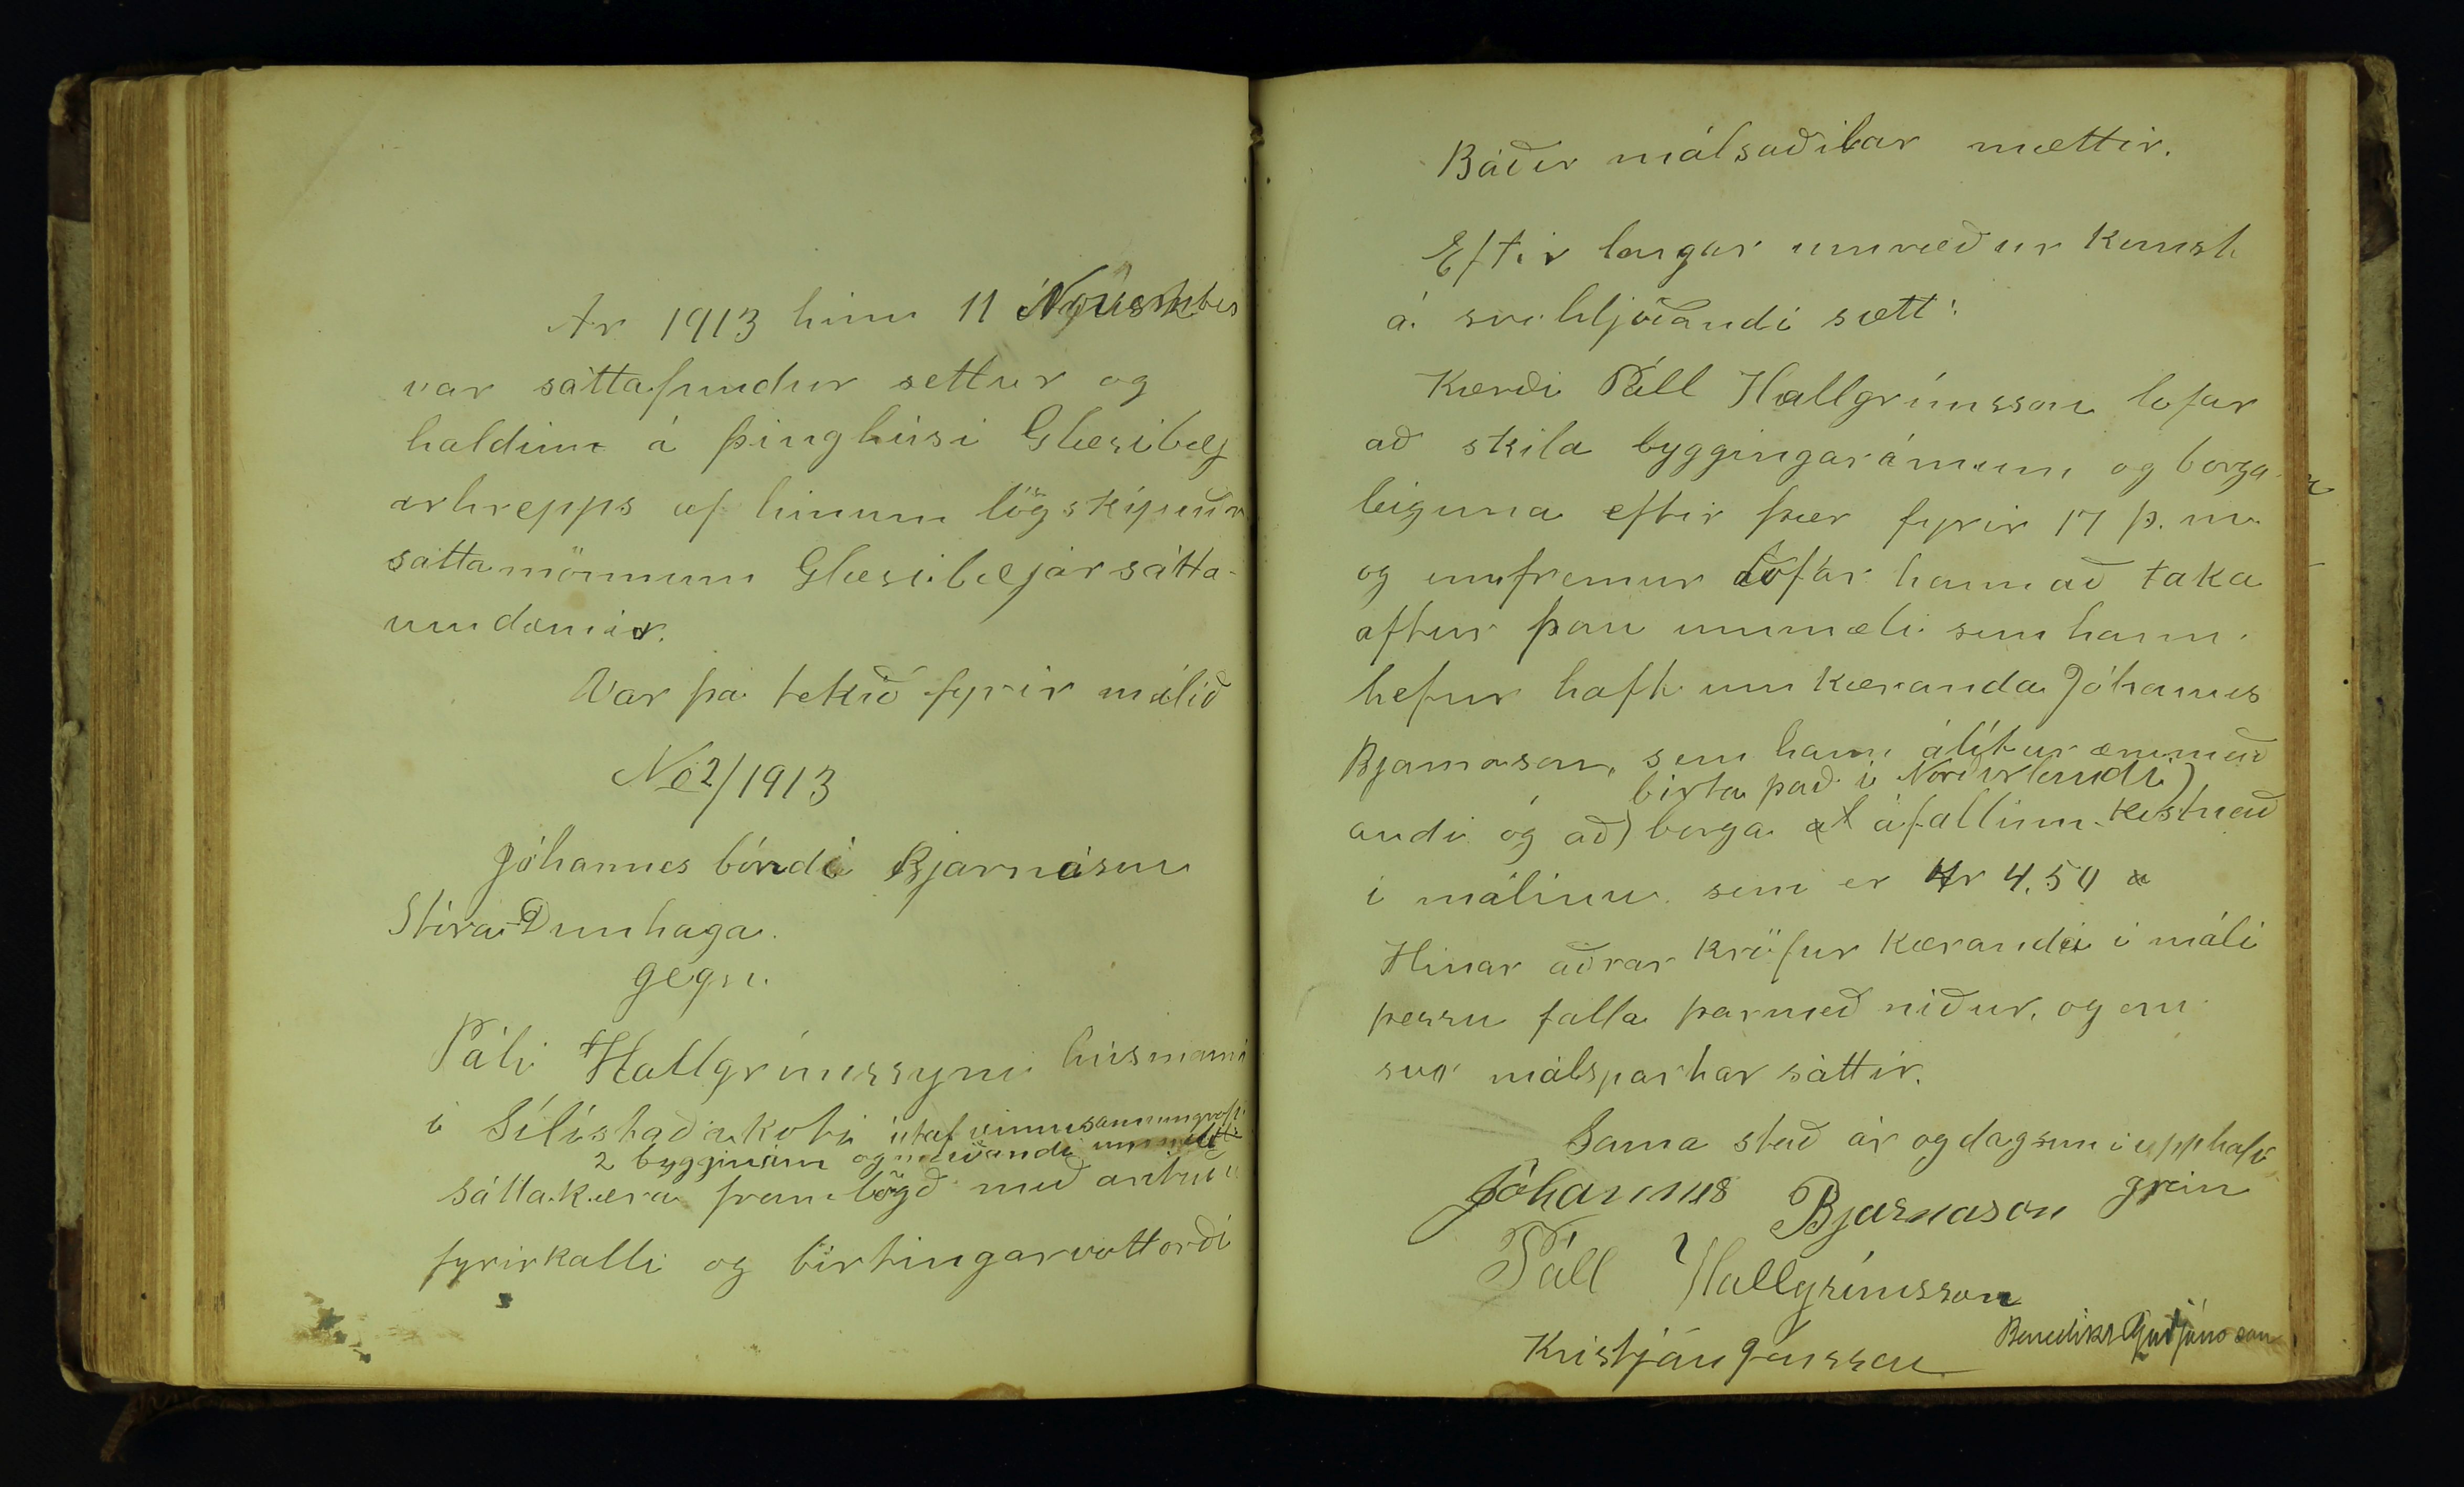 Ár 1913 hinn 11 November
var sáttafundur settur og
haldinn á þinghúsi Glæsibæj
arhrepps af hinum lögskipuðu
sáttamönnum Glæsibæjarsátta-
umdæmis.
Var þá tekið fyrir málið
No 2/1913
Jóhannes bóndi Bjarnason
Stóra-Dunhaga.
gegn.
Páli Hallgrímssyni húsmanni
í Sílistaðakoti útaf vinnusamningrofi
2 byggin og meiðandi ummæli
sáttakæra framlögð með
fyrirkalli og birtingarvottorði
Báðir málsaðilar mættir.
Eftir langar umræður komst
á svohljóðandi sætt:
Kærði Páll Hallgrímsson lofar
að skila byggingarámunn, og borga
leiguna eftir þær fyrir 17 þ.m.
og ennfremur lofar hann að taka
aftur þau ummæli sem hann
hefur haft um kæranda Jóhannes
Bjarnason, sem hann álítur ærumeið
birta það í Norðurlandi)
andi og að) borga áfallinn kostnað
í málinu sem er Kr 4.50
Hinar aðrar kröfur kæranda í máli
þessu falla þarmeð niður, og eru
svo málspartar sáttir.
Sama stað ár og dag sem í upphafi
grein
Jóhannes Bjarnason
Páll Hallgrímsson
Benedikt Guðjónsson
Kristján Jónsson